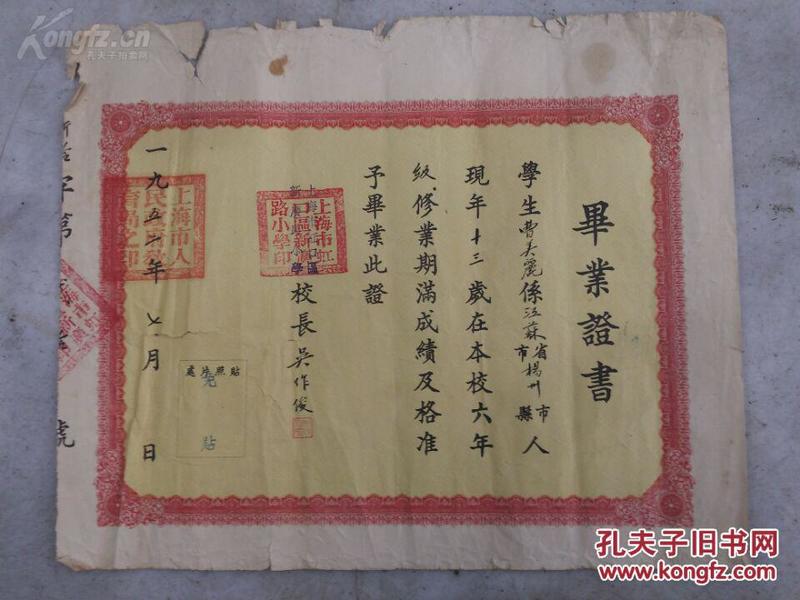 畢業證書
學生曹美麗係江蘇省市揚州市縣人
現年十三歲在本校六年
級修業期滿成績及格准
予畢業此證
校長吳作俊
上海市虹口區新廣路小學印
貼照片處
免貼
一九五七年七月 日
上海市人民政府教育局之印
字第 號
Kongfz.cn
孔夫子拍卖网
孔夫子旧书网
www.kongfz.com